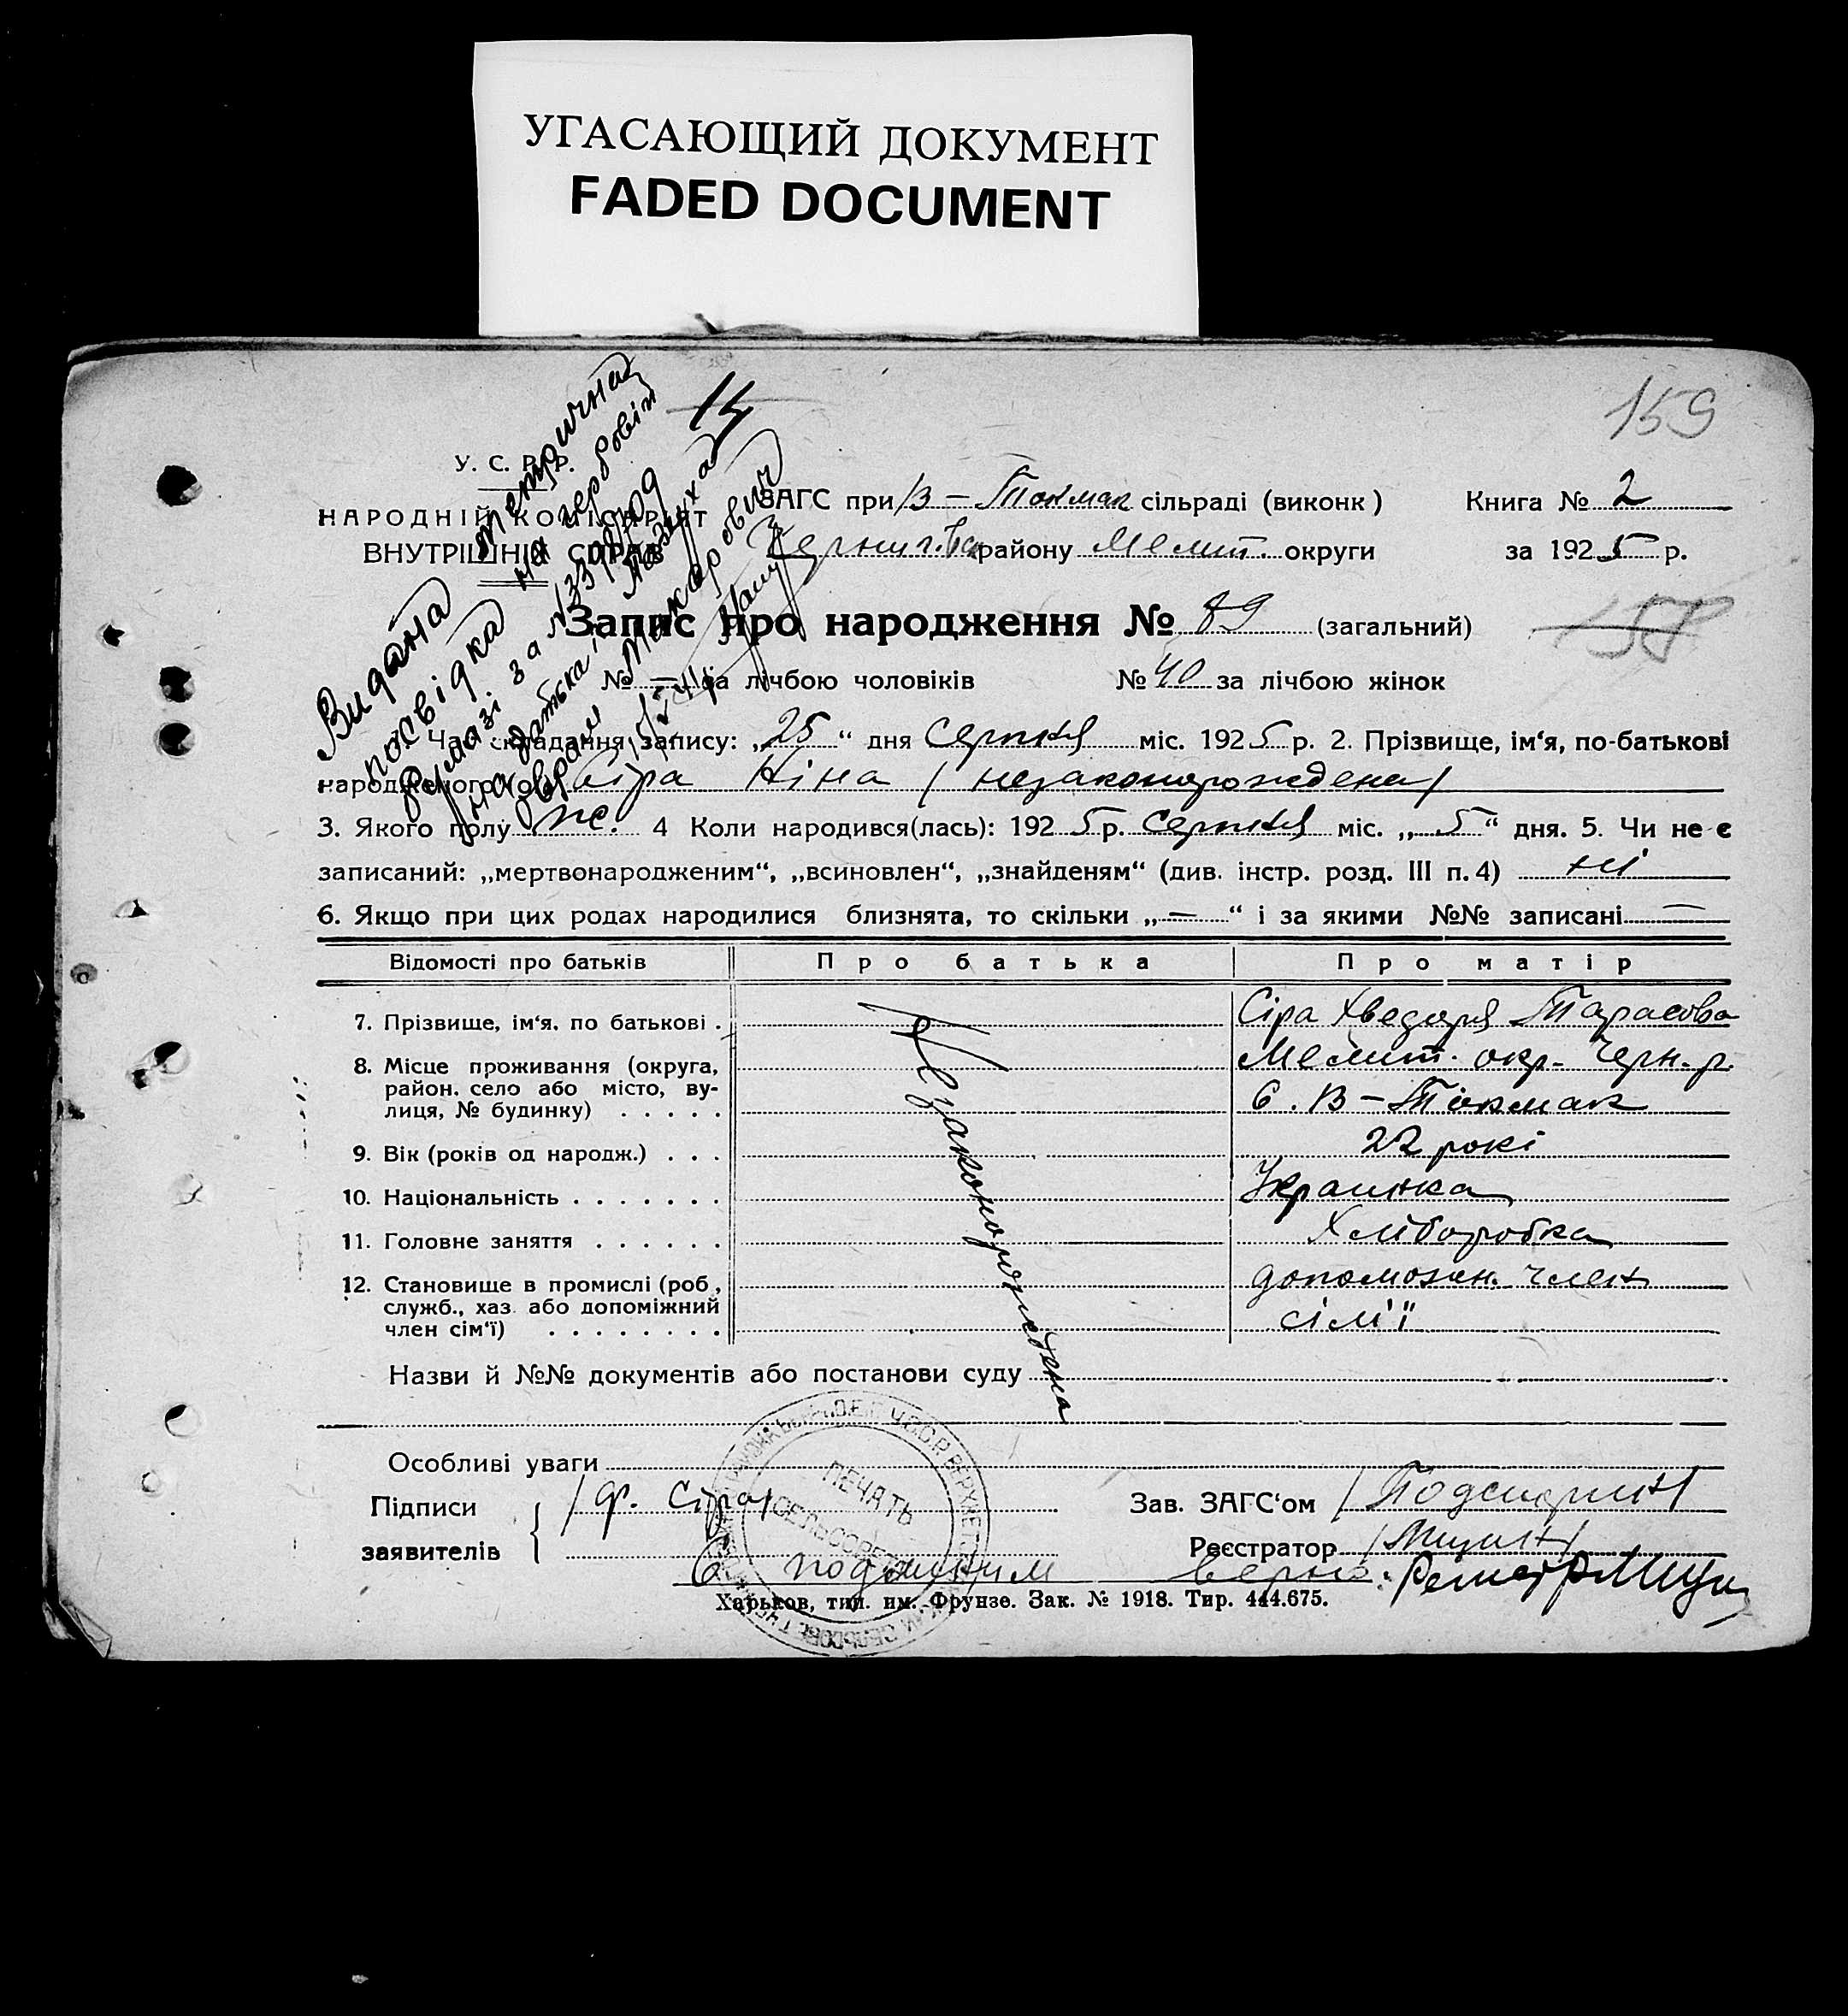 УГАСАЮЩИЙ ДОКУМЕНТ
FADED DOCUMENT
159
14
У. С. Р. Р.
НАРОДНІЙ КОМІСАРІЯТ
ВНУТРІШНІХ СПРАВ
Видана метрична
посвідка на гербовім
за № 339709
на батька Мазуха
Макарович
ЗАГС при В-Токмак сільраді (виконк)
Книга № 2
Черниг. району Меліт. округи
за 1925 р.
Запис про народження № 89 (загальний)
158
№ — за лічбою чоловіків № 40 за лічбою жінок
1. Час складання запису: „25“ дня Серпня міс. 1925 р. 2. Прізвище, ім‘я, по-батькові
народженого (ої) Сіра Ніна /незаконорождена/
3. Якого полу ж. 4 Коли народився(лась): 1925 р. Серпня міс. „5“ дня. 5. Чи не є
записаний: „мертвонародженим“, „всиновлен“, „знайденям“ (див. інстр. розд. III п. 4) ні
6. Якщо при цих родах народилися близнята, то скільки „—“ і за якими №№ записані —
Відомості про батьків Про батька Про матір
7. Прізвище, ім‘я, по батькові . Сіра Хведоря Тарасова
8. Місце проживання (округа, Меліт. окр. Черн. р.
район, село або місто, ву-
лиця, № будинку) . . . . . С. В-Токмак
9. Вік (років од народж.) . . . 22 рокі
10. Національність . . . . . . . Украинка
11. Головне заняття . . . . . . Хліборобка
12. Становище в промислі (роб., допоможн. член
служб., хаз. або допоміжний
член сім‘ї) . . . . . . . . сім'ї
Незаконорождена
Назви й №№ документів або постанови суду
Особливі уваги
Підписи
заявителів
/Ф. Сіра/
Зав. ЗАГС‘ом /
Реєстратор /
ПЕЧАТЬ
СЕЛЬСОВЕТА
С подлиним верно:
Харьков, тип. им. Фрунзе. Зак. № 1918. Тир. 444.675.